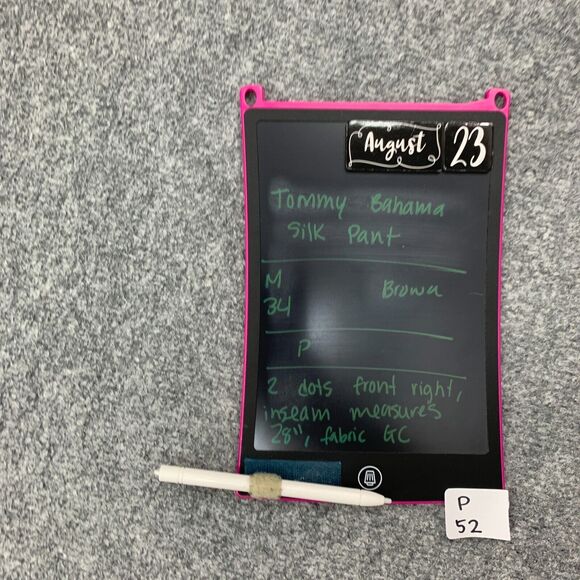 August 23
Tommy Bahama
Silk Pant
M Brown
34
P
2 dots front right,
inseam measures
28", fabric GC
P
52